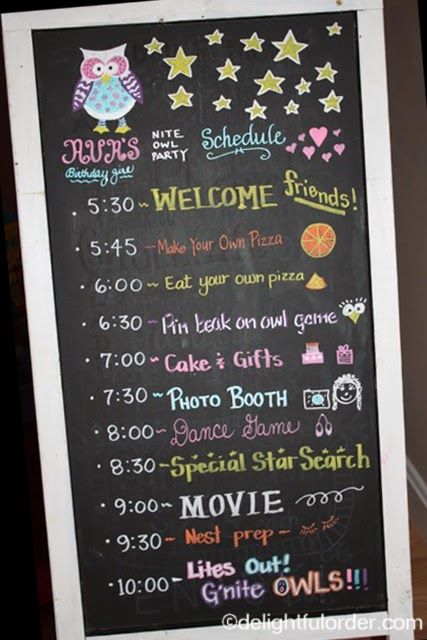 AVA'S
Birthday girl
NITE
OWL
PARTY
Schedule
• 5:30 ~ WELCOME friends!
• 5:45 -- Make Your Own Pizza
• 6:00 ~ Eat your own pizza
• 6:30 ~ Pin beak on owl game
• 7:00 ~ Cake & Gifts
• 7:30 ~ PHOTO BOOTH
• 8:00 - Dance Game
• 8:30 - Special Star Search
• 9:00 ~ MOVIE
• 9:30 ~ Nest prep -
• 10:00 ~ Lites Out!
G'nite OWLS!!!
©delightfulorder.com